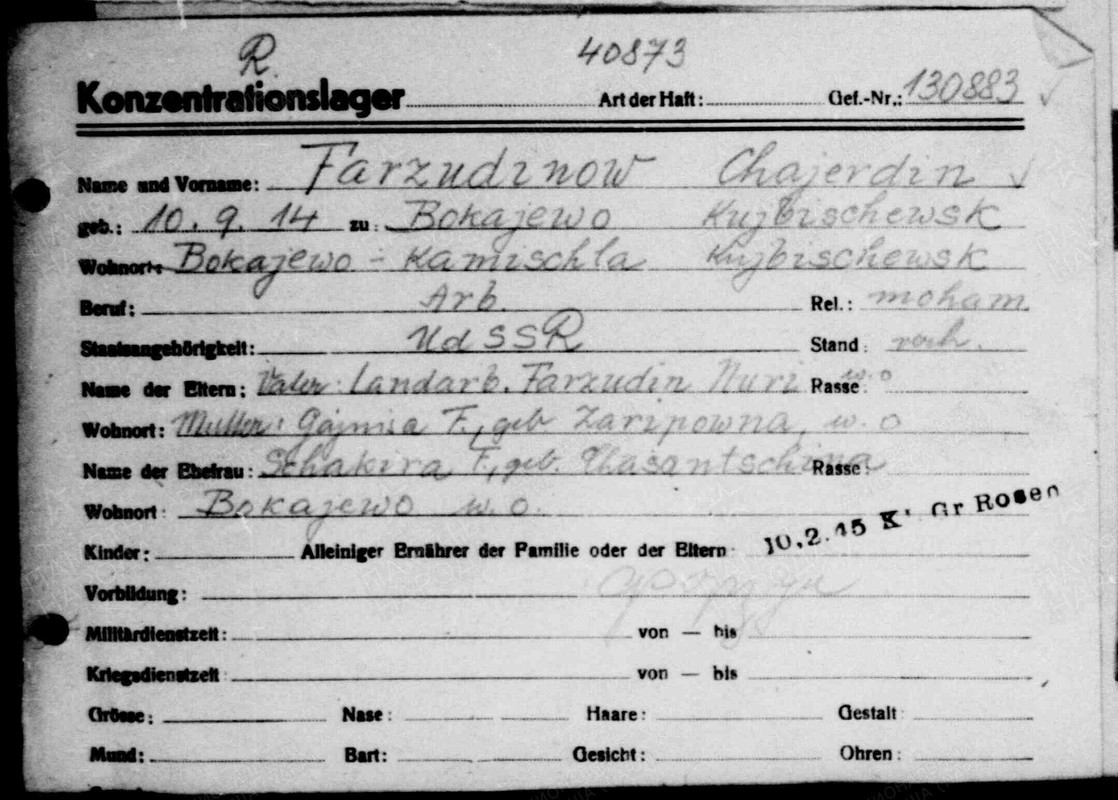 R. 40873
Konzentrationslager Art der Haft: Gef.-Nr.: 130883
Name und Vorname: Farzudinow Chajerdin
geb.: 10.9.14 zu: Bokajewo Kujbischewsk
Wohnort: Bokajewo - Kamischla Kujbischewsk
Beruf: Arb. Rel.: moham.
Staatsangehörigkeit: UdSSR Stand: verh.
Name der Eltern: Vater: Landarb. Farzudin Nuri Rasse: w.o
Wohnort: Mutter: Gajmisa F., geb Zaripowna, w.o
Name der Ehefrau: Schakira F, geb. Chasantschina Rasse:
Wohnort: Bokajewo w.o.
10.2.45 K. Gr Rosen
Kinder: Alleiniger Ernährer der Familie oder der Eltern:
Vorbildung:
Militärdienstzeit: von — bis
Kriegsdienstzeit: von — bis
Grösse: Nase: Haare: Gestalt:
Mund: Bart: Gesicht: Ohren: